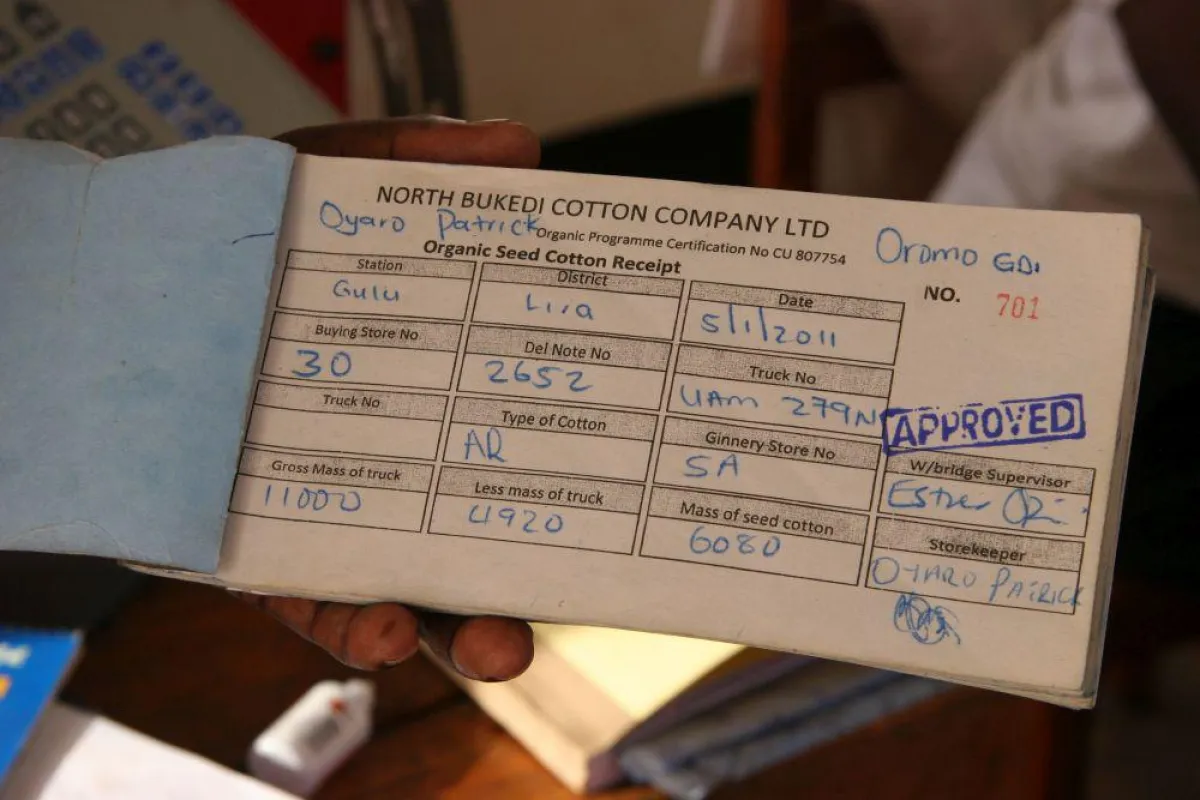 NORTH BUKEDI COTTON COMPANY LTD
Oyaro Patrick
Organic Programme Certification No CU 807754
Oromo GDI
Organic Seed Cotton Receipt
NO. 701
Station District Date
Gulu Lira 5/1/2011
Buying Store No Del Note No Truck No
30 2652 UAM 279N
APPROVED
Truck No Type of Cotton Ginnery Store No W/bridge Supervisor
AR 5A Esther
Gross Mass of truck Less mass of truck Mass of seed cotton Storekeeper
11000 4920 6080 OYARO PATRICK